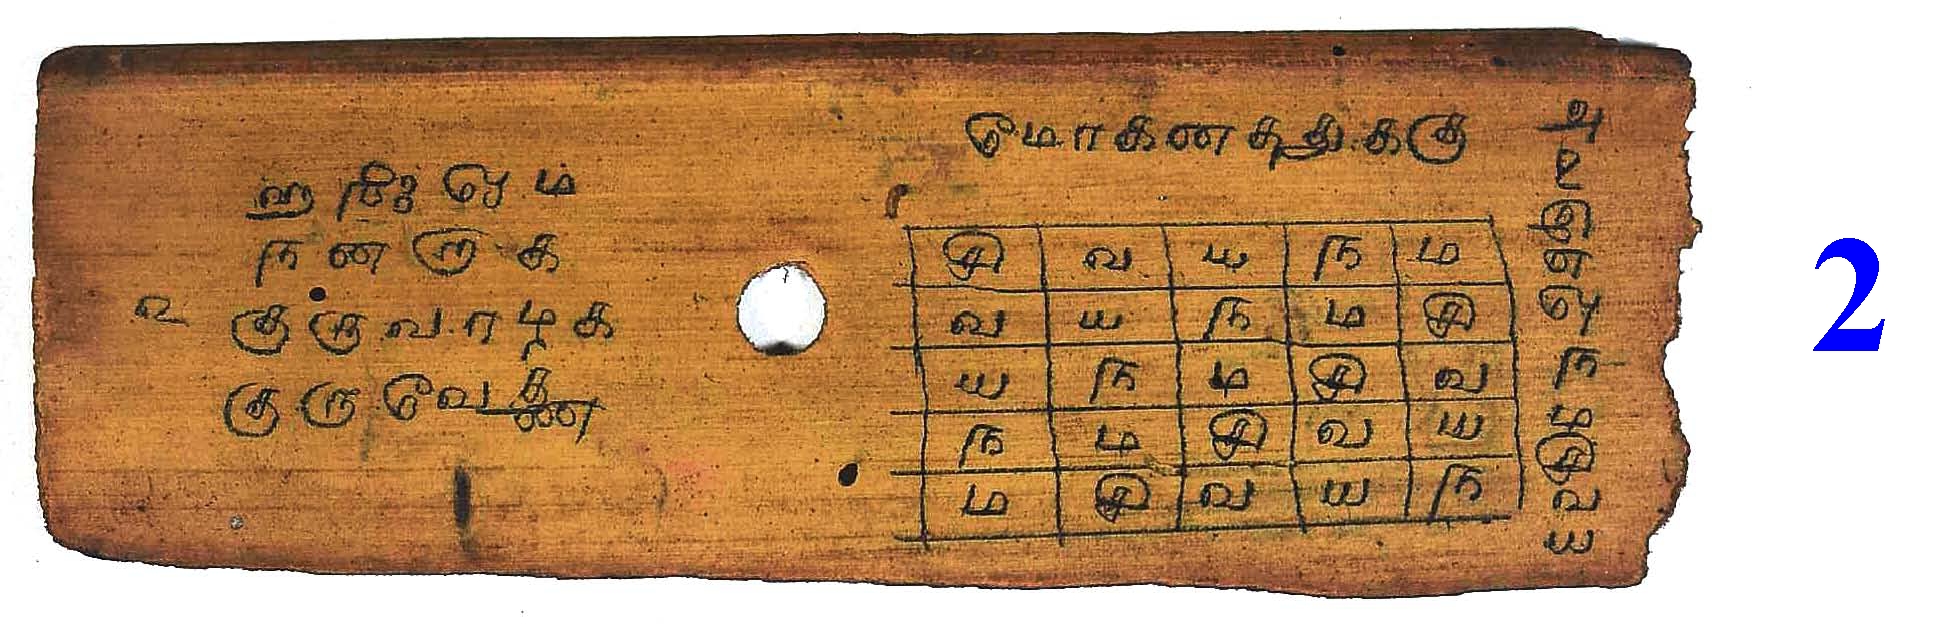 ஹரிஓம
நனறாக
௨ குருவாழக
குருவே துணை
மொகனததுககு
சி வ ய ந ம
வ ய ந ம சி
ய ந ம சி வ
ந ம சி வ ய
ம சி வ ய ந
ந ம சி வ ய
2